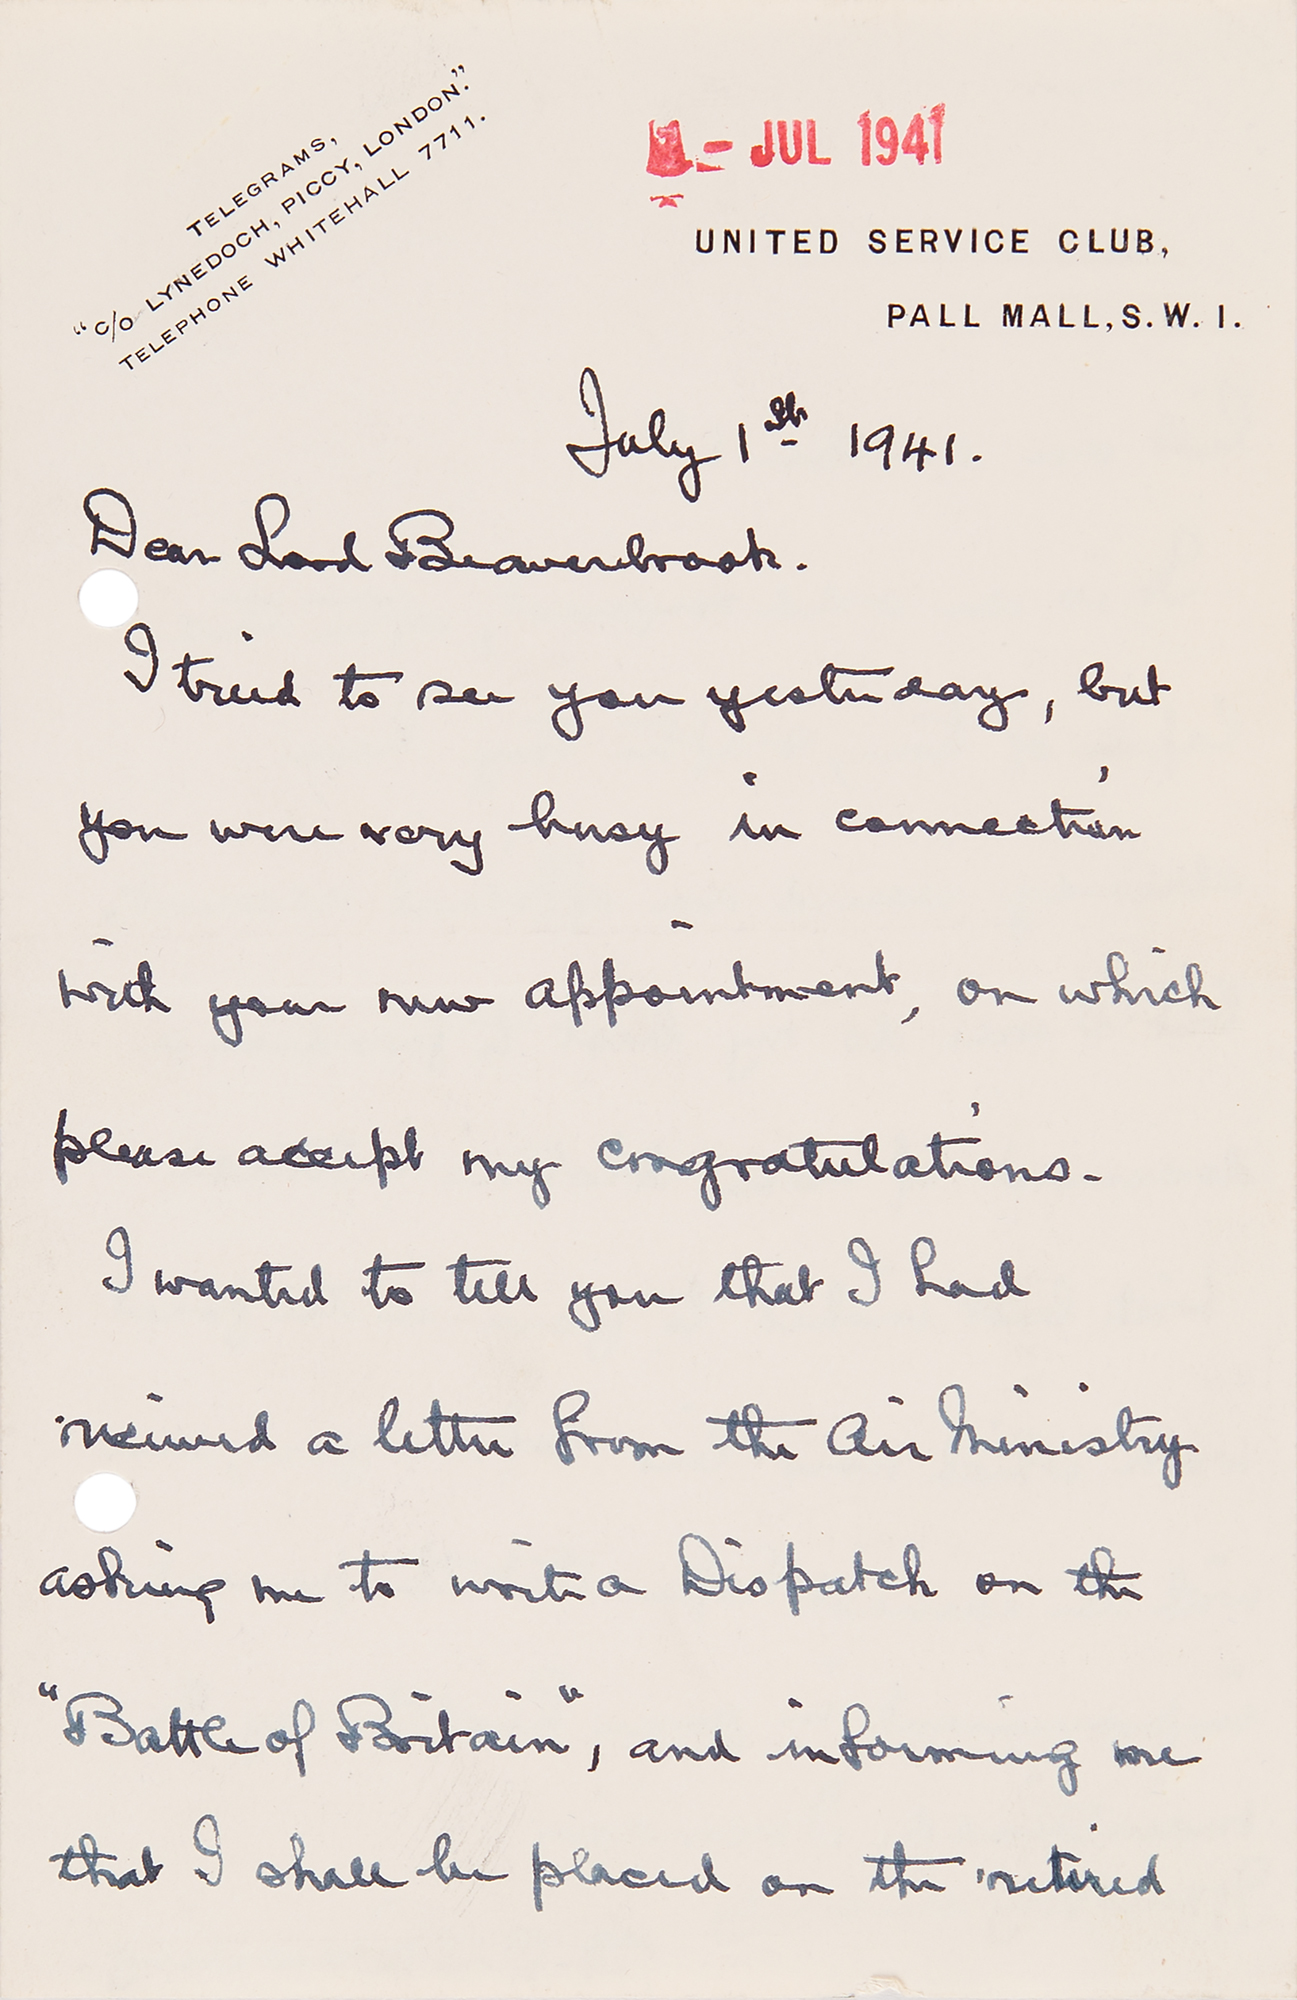 TELEGRAMS,
"C/O LYNEDOCH, PICCY, LONDON."
TELEPHONE WHITEHALL 7711.
- JUL 1941
UNITED SERVICE CLUB,
PALL MALL, S.W. 1.
July 1st 1941.
Dear Lord Beaverbrook.
I tried to see you yesterday, but
you were very busy in connection
with your new appointment, on which
please accept my congratulations.
I wanted to tell you that I had
received a letter from the Air Ministry
asking me to write a Dispatch on the
"Battle of Britain", and informing me
that I shall be placed on the retired